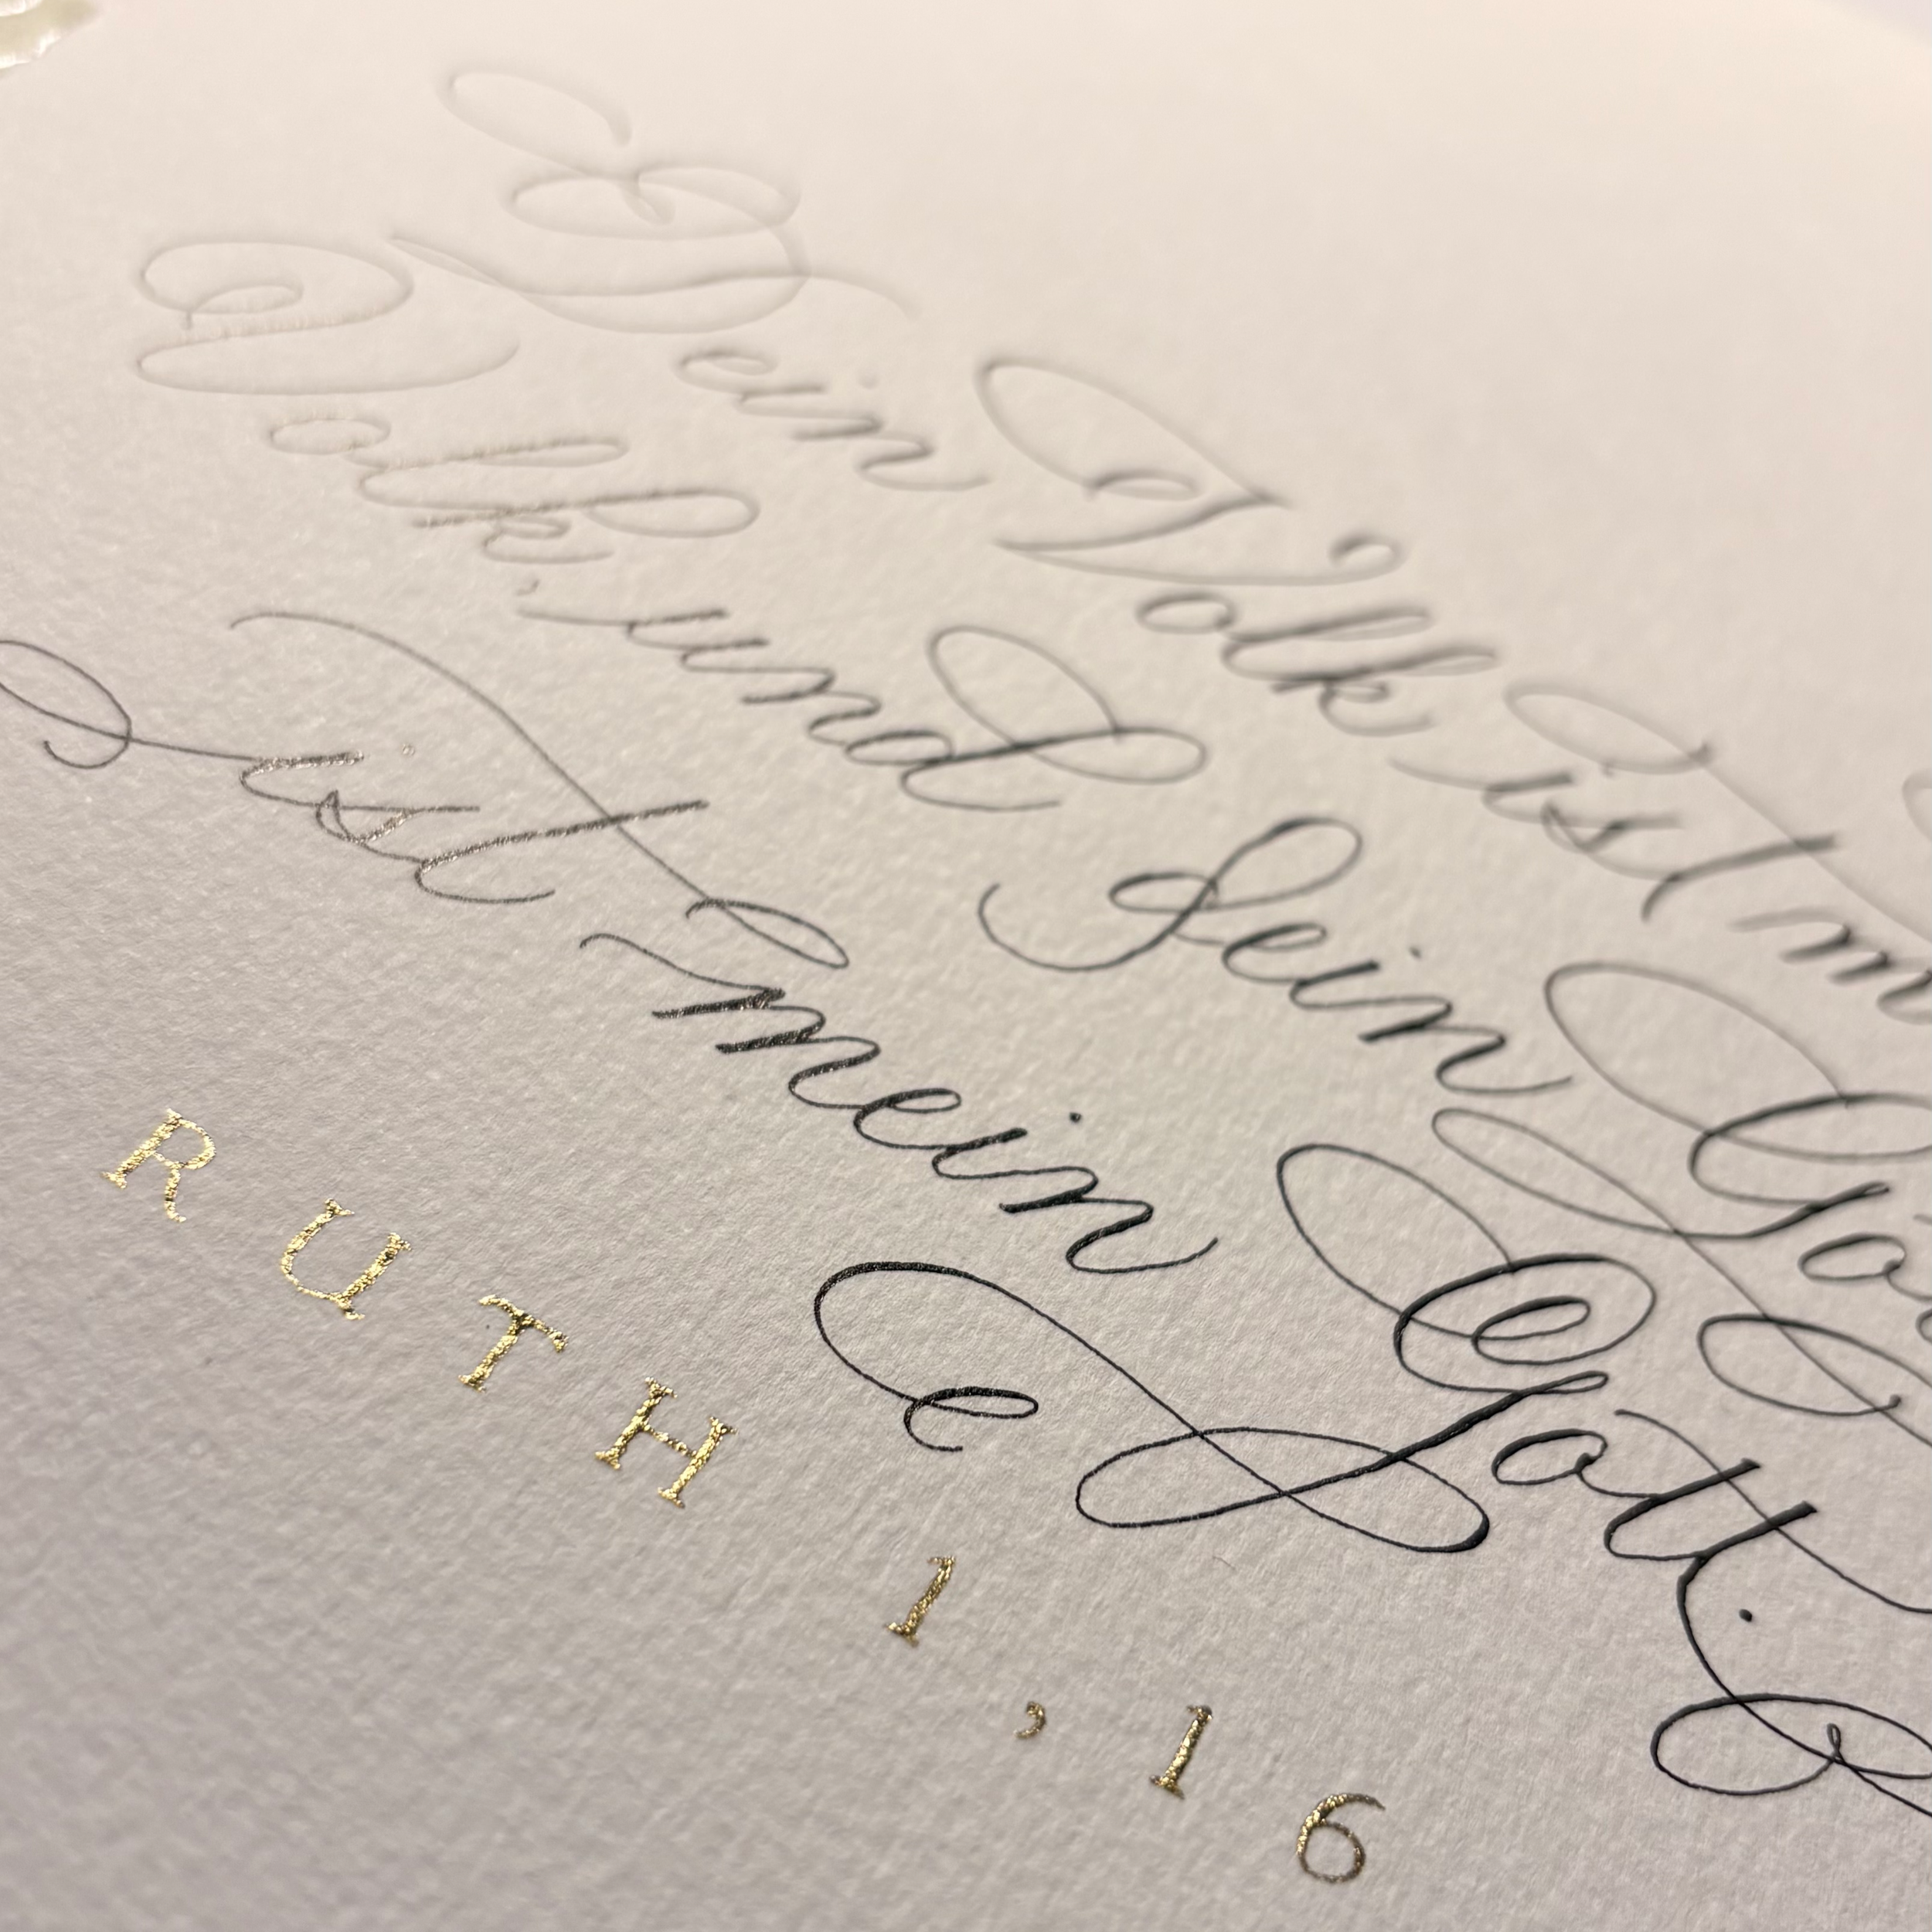 Dein Volk ist m
Volk, und dein Go
ist mein Gott.
RUTH 1,16